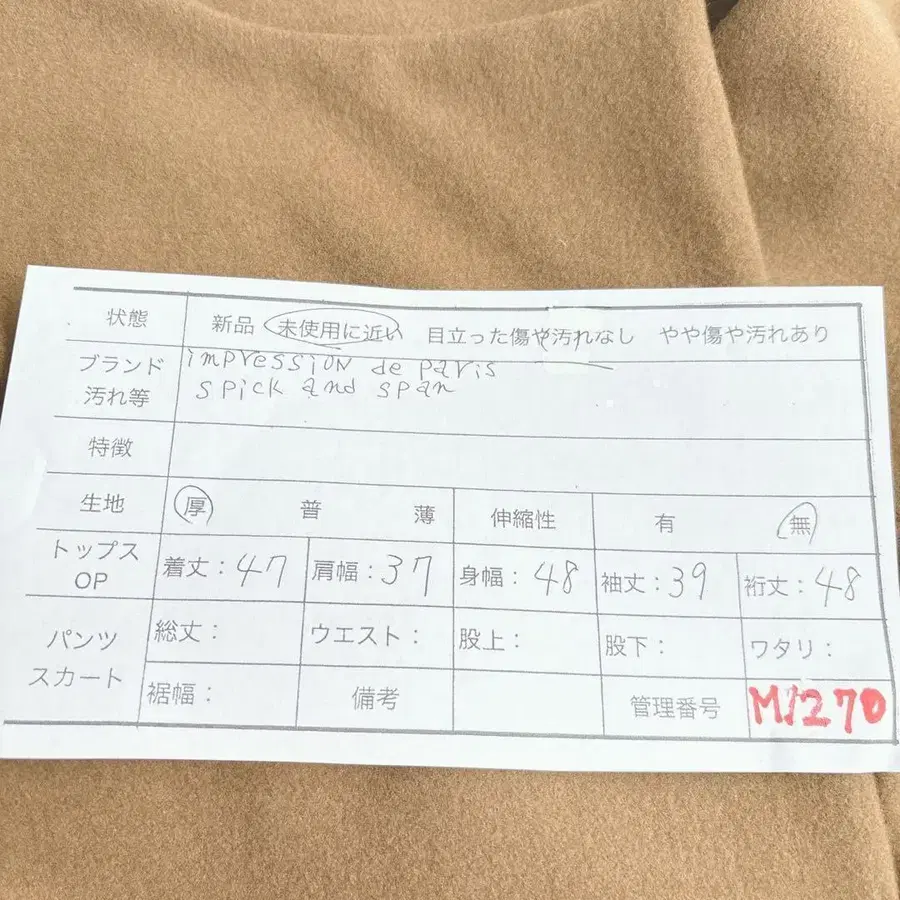 状態 新品 未使用に近い 目立った傷や汚れなし やや傷や汚れあり
ブランド impression de paris
汚れ等 spick and span
特徴
生地 厚 普 薄 伸縮性 有 無
トップス OP 着丈:47 肩幅:37 身幅:48 袖丈:39 裄丈:48
パンツ スカート 総丈: ウエスト: 股上: 股下: ワタリ:
裾幅: 備考 管理番号 M1270